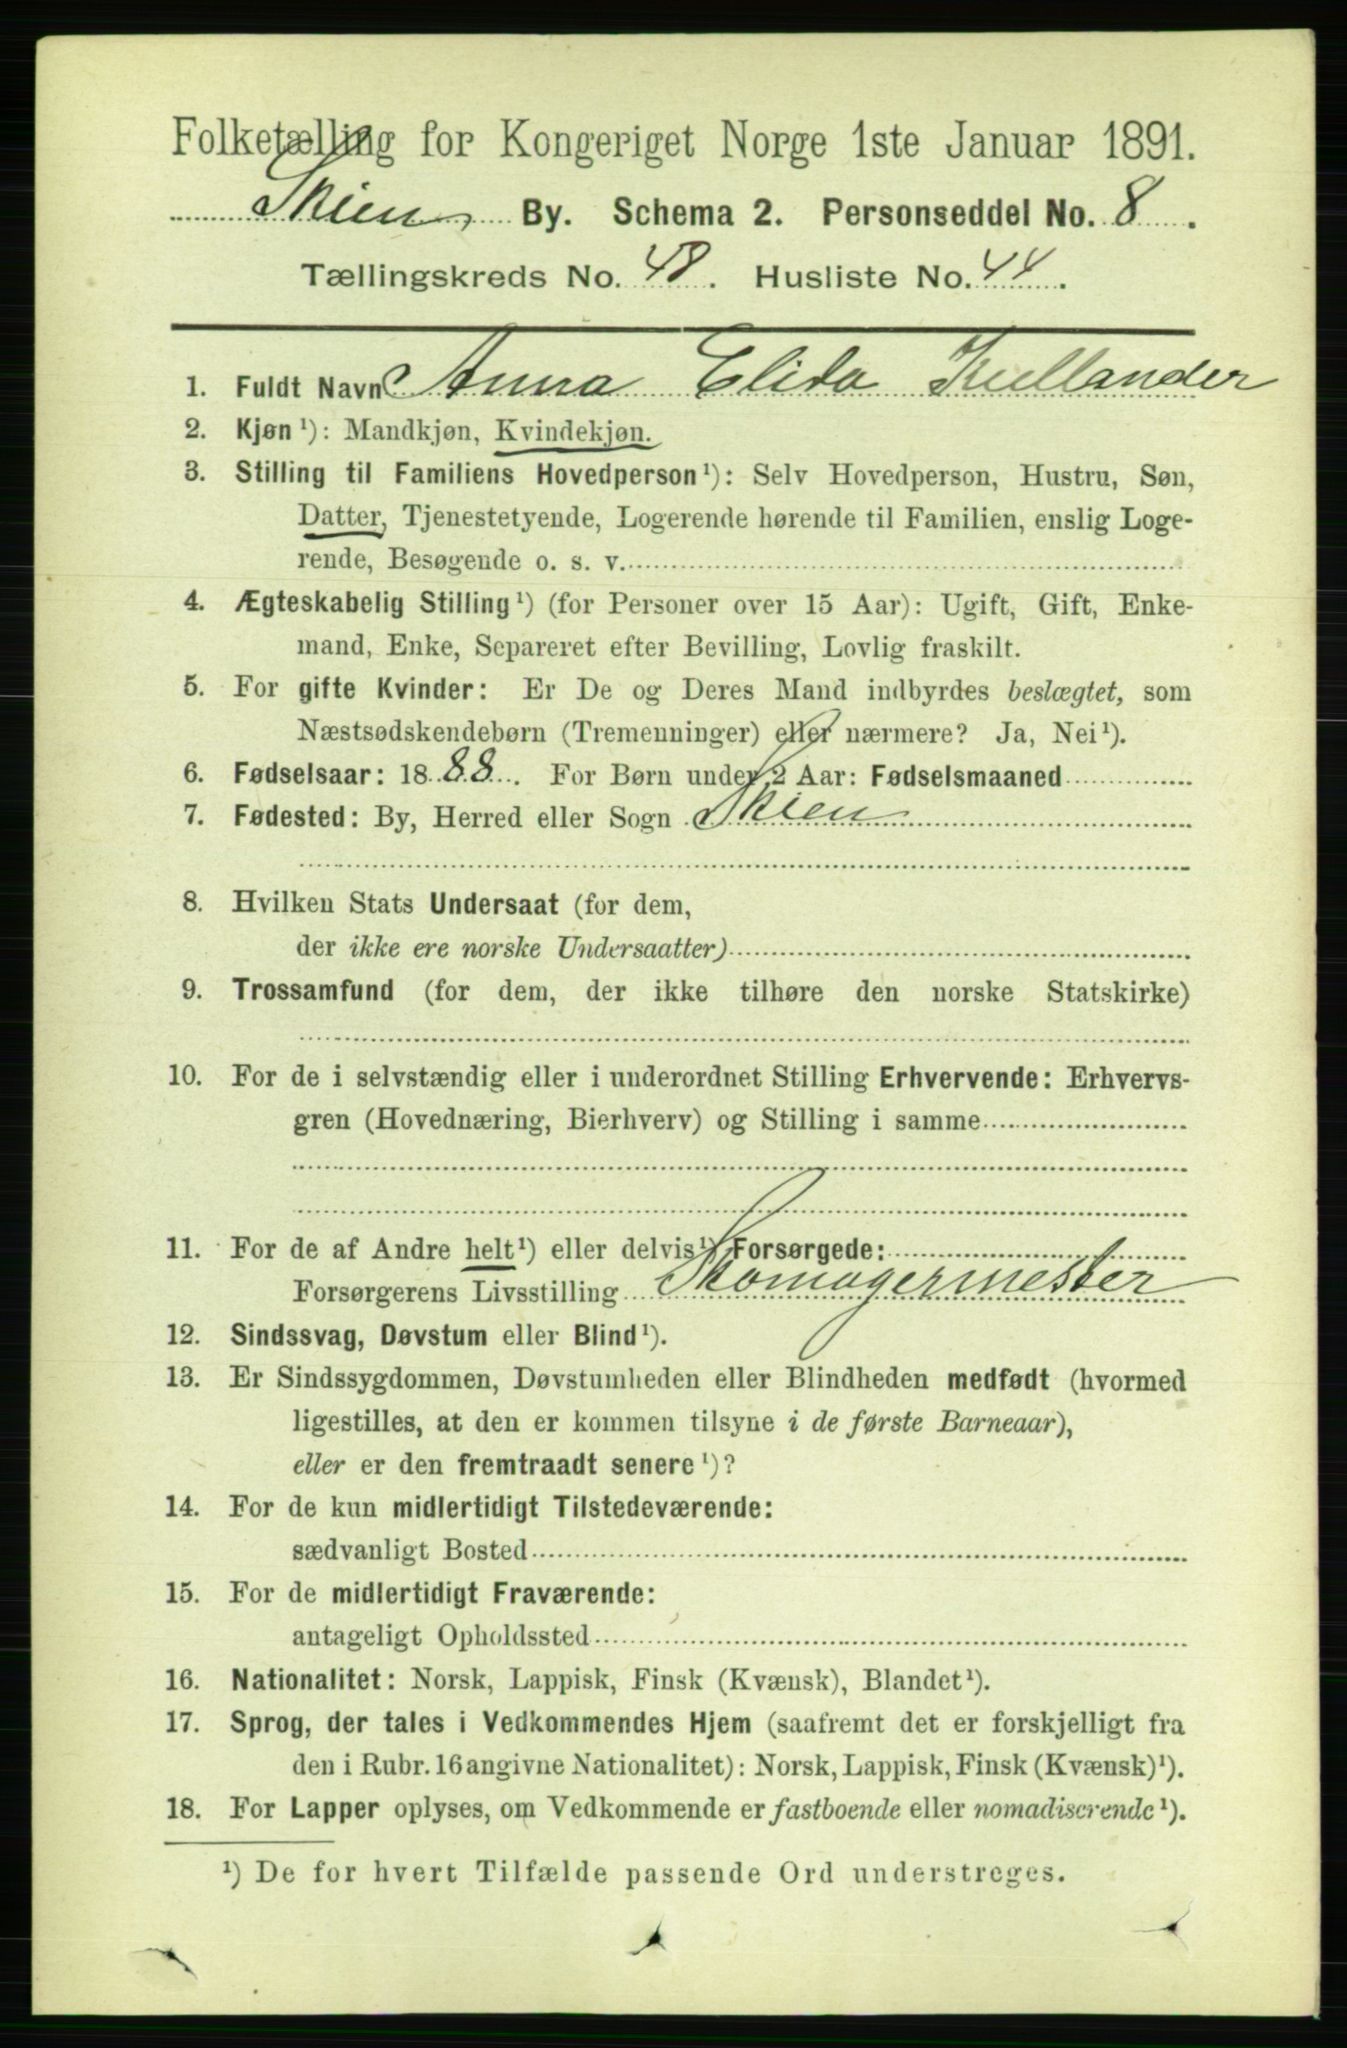 Folketælling for Kongeriget Norge 1ste Januar 1891.
Skien, By. Schema 2. Personseddel No. 8.
Tællingskreds No. 48. Husliste No. 44.
1. Fuldt Navn Anna Elida Kullander
2. Kjøn ¹): Mandkjøn, Kvindekjøn.
3. Stilling til Familiens Hovedperson ¹): Selv Hovedperson, Hustru, Søn,
Datter, Tjenestetyende, Logerende hørende til Familien, enslig Loge-
rende, Besøgende o. s. v.
4. Ægteskabelig Stilling ¹) (for Personer over 15 Aar): Ugift, Gift, Enke-
mand, Enke, Separeret efter Bevilling, Lovlig fraskilt.
5. For gifte Kvinder: Er De og Deres Mand indbyrdes beslægtet, som
Næstsødskendebørn (Tremenninger) eller nærmere? Ja, Nei ¹).
6. Fødselsaar: 1888. For Børn under 2 Aar: Fødselsmaaned
7. Fødested: By, Herred eller Sogn Skien
8. Hvilken Stats Undersaat (for dem,
der ikke ere norske Undersaatter)
9. Trossamfund (for dem, der ikke tilhøre den norske Statskirke)
10. For de i selvstændig eller i underordnet Stilling Erhvervende: Erhvervs-
gren (Hovednæring, Bierhverv) og Stilling i samme
11. For de af Andre helt ¹) eller delvis ¹) Forsørgede:
Forsørgerens Livsstilling Skomagermester
12. Sindssvag, Døvstum eller Blind ¹).
13. Er Sindssygdommen, Døvstumheden eller Blindheden medfødt (hvormed
ligestilles, at den er kommen tilsyne i de første Barneaar),
eller er den fremtraadt senere ¹)?
14. For de kun midlertidigt Tilstedeværende:
sædvanligt Bosted
15. For de midlertidigt Fraværende:
antageligt Opholdssted
16. Nationalitet: Norsk, Lappisk, Finsk (Kvænsk), Blandet ¹).
17. Sprog, der tales i Vedkommendes Hjem (saafremt det er forskjelligt fra
den i Rubr. 16 angivne Nationalitet): Norsk, Lappisk, Finsk (Kvænsk) ¹).
18. For Lapper oplyses, om Vedkommende er fastboende eller nomadiserende ¹).
¹) De for hvert Tilfælde passende Ord understreges.